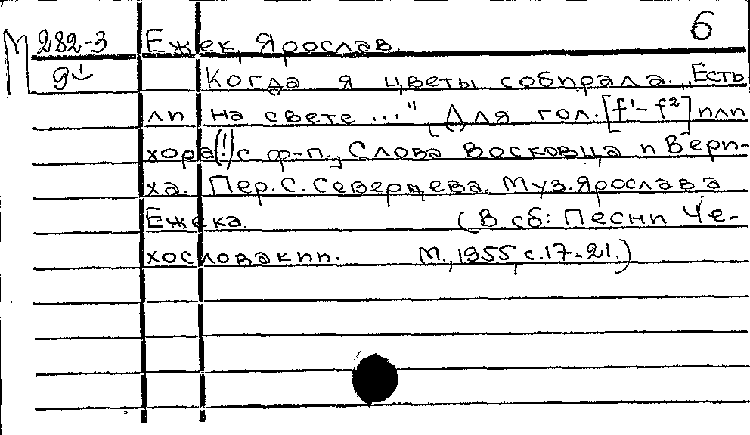 6
М 282-3 Ежек, Ярослав.
9 Когда я цветы собирала. Есть
ли на свете ..." Для гол. [f¹-f²] или
хора(!) с ф-п., Слова Восковца и Вери-
ха. Пер. С. Северцева. Муз. Ярослава
Ежека. (В сб: Песни Че-
хословакии. М., 1955, с. 17-21.)